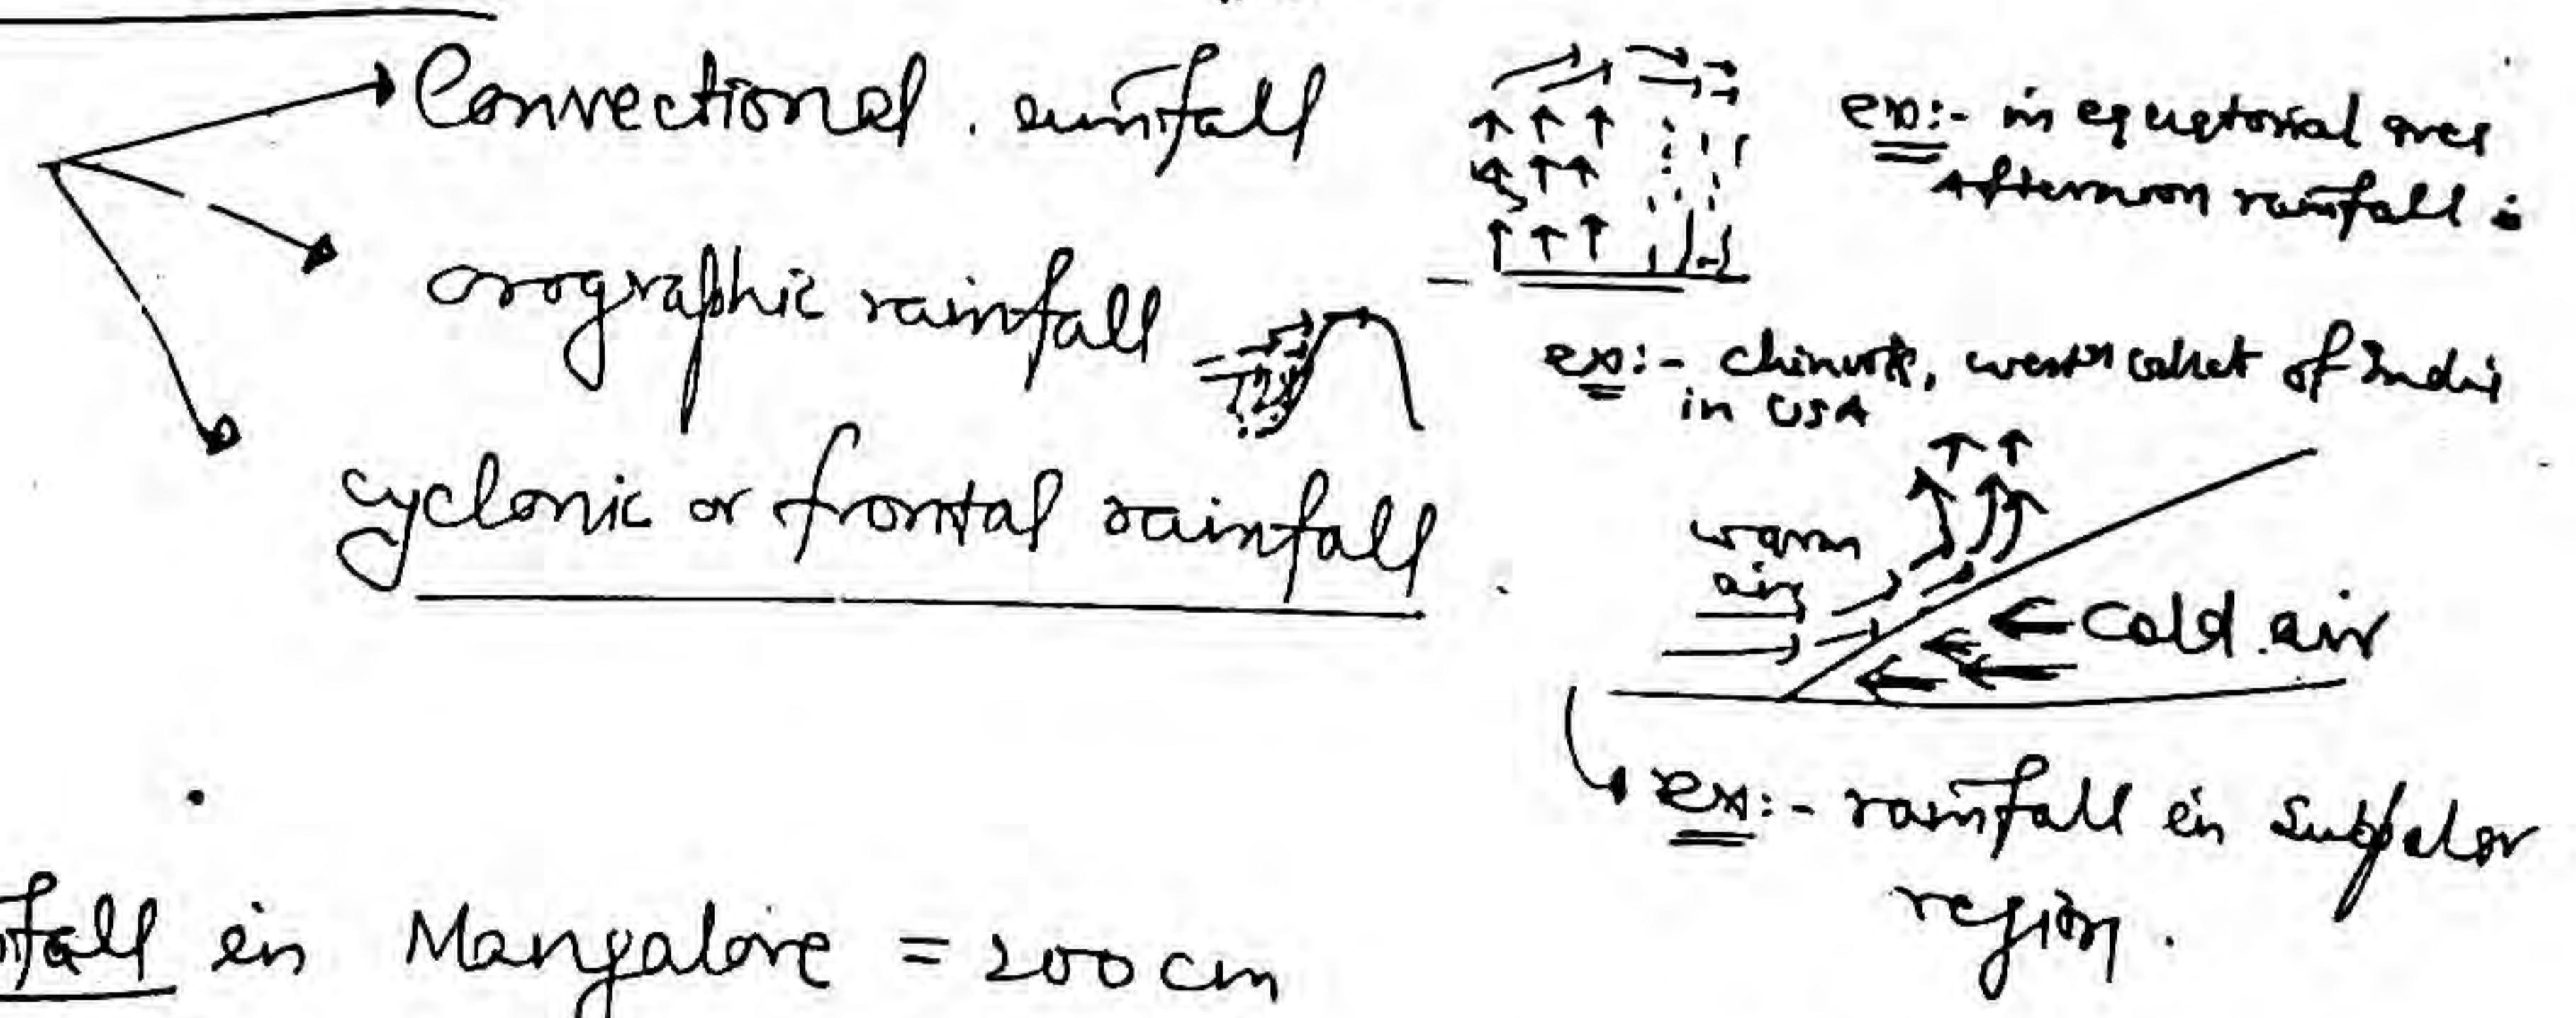 Convectional rainfall
ex:- in equatorial area
Afternoon rainfall
orographic rainfall
ex:- chinook, west coast of India
in USA
cyclonic or frontal rainfall
warm
air
cold air
ex:- rainfall in subpolar
region.
fall in Mangalore = 200 cm